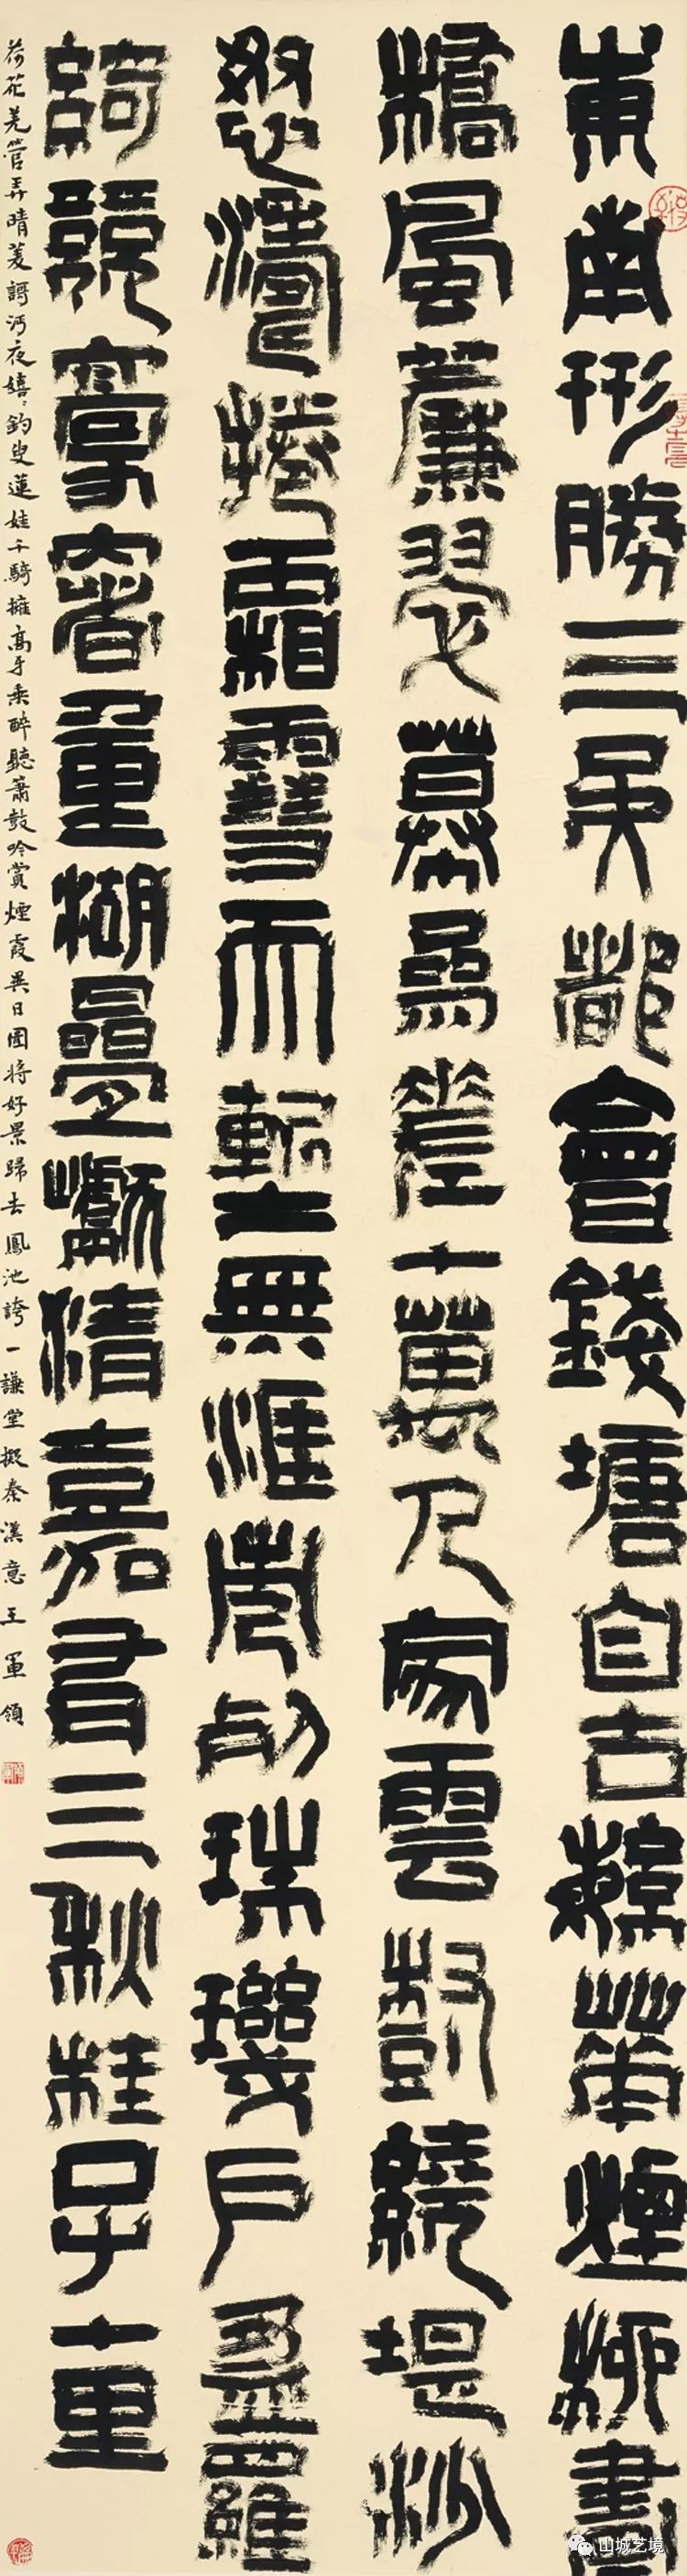 東南形勝三吳都會錢塘自古繁華煙柳畫
橋風簾翠幕參差十萬人家雲樹繞堤沙
怒濤捲霜雪天塹無涯市列珠璣戶盈羅
綺競豪奢重湖疊巘清嘉有三秋桂子十里
荷花羌管弄晴菱謌汎夜嬉〻釣叟蓮娃千騎擁高牙乘醉聽簫鼓吟賞煙霞異日圖將好景歸去鳳池誇一謙堂擬秦漢意王軍領
山城艺境